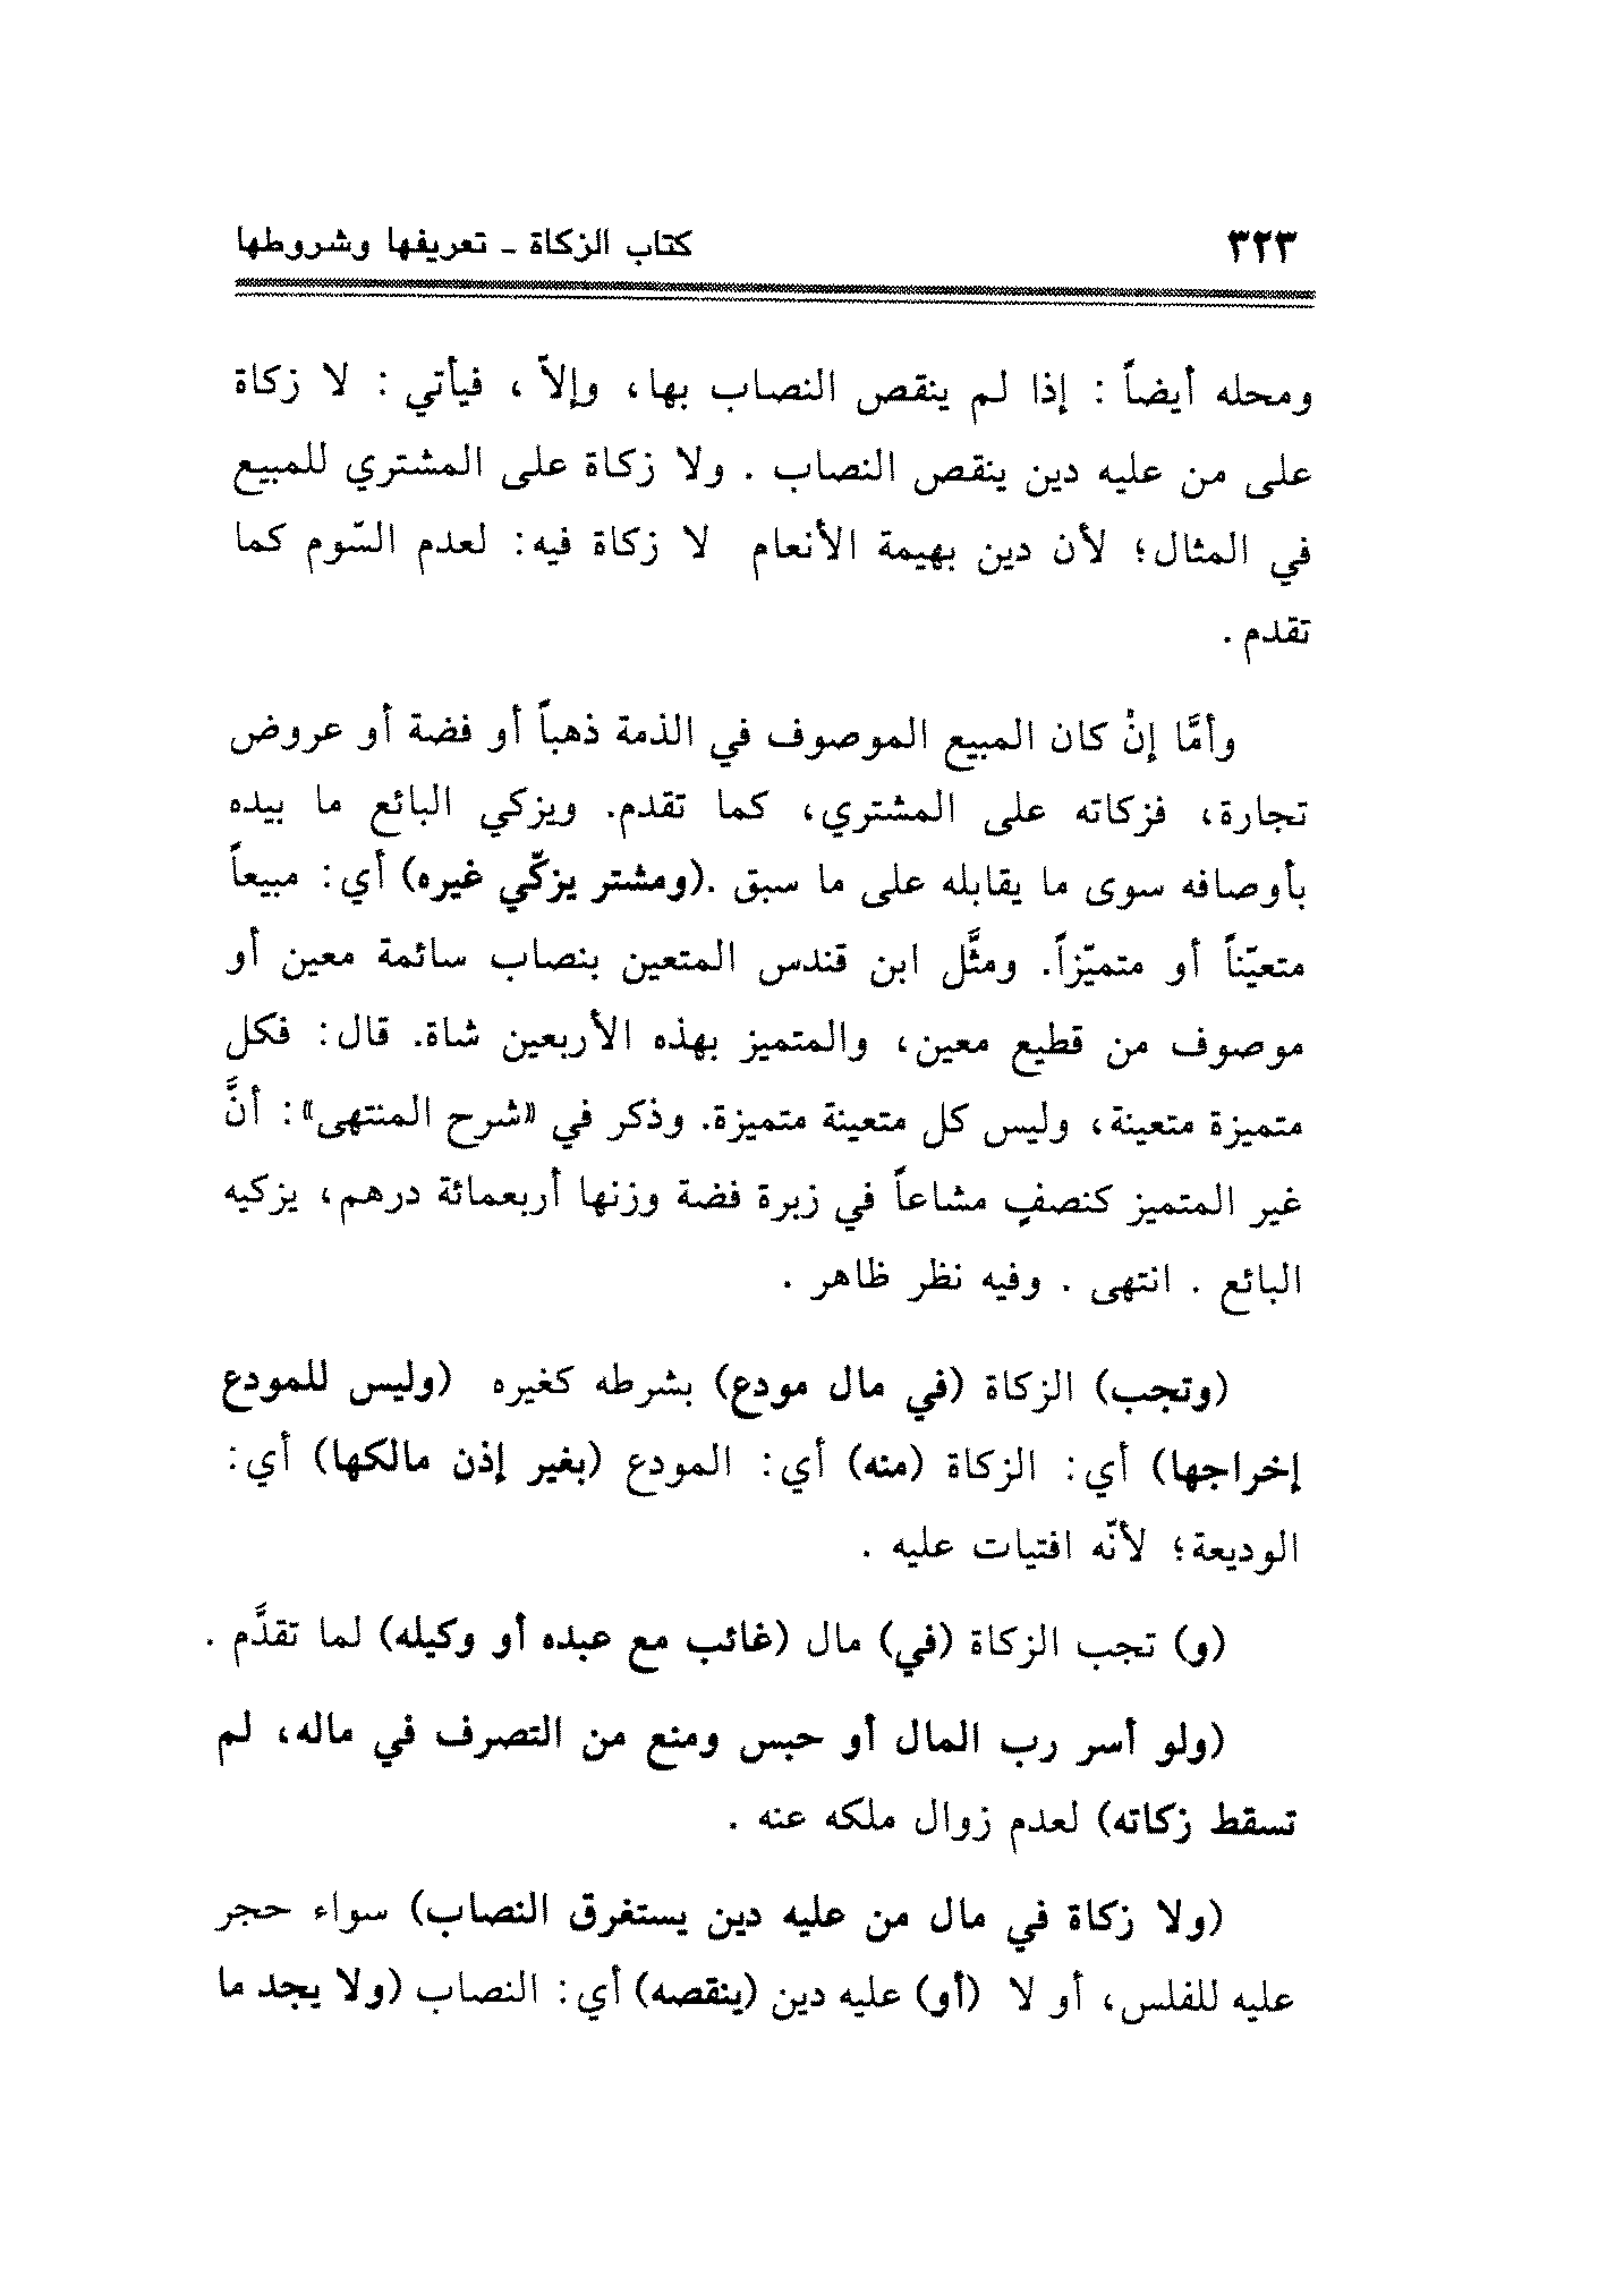 ٣٢٣ كتاب الزكاة ـ تعريفها وشروطها
ومحله أيضاً : إذا لم ينقص النصاب بها، وإلاّ ، فيأتي : لا زكاة
على من عليه دين ينقص النصاب . ولا زكاة على المشتري للمبيع
في المثال؛ لأن دين بهيمة الأنعام لا زكاة فيه: لعدم السّوم كما
تقدم .
وأمَّا إنْ كان المبيع الموصوف في الذمة ذهباً أو فضة أو عروض
تجارة، فزكاته على المشتري، كما تقدم. ويزكي البائع ما بيده
بأوصافه سوى ما يقابله على ما سبق .(ومشتر يزكّي غيره) أي: مبيعاً
متعيّناً أو متميّزاً. ومثَّل ابن قندس المتعين بنصاب سائمة معين أو
موصوف من قطيع معين، والمتميز بهذه الأربعين شاة. قال: فكل
متميزة متعينة، وليس كل متعينة متميزة. وذكر في «شرح المنتهى»: أنَّ
غير المتميز كنصفٍ مشاعاً في زبرة فضة وزنها أربعمائة درهم، يزكيه
البائع . انتهى . وفيه نظر ظاهر .
(وتجب) الزكاة (في مال مودع) بشرطه كغيره (وليس للمودع
إخراجها) أي: الزكاة (منه) أي: المودع (بغير إذن مالكها) أي:
الوديعة؛ لأنّه افتيات عليه .
(و) تجب الزكاة (في) مال (غائب مع عبده أو وكيله) لما تقدَّم .
(ولو أسر رب المال أو حبس ومنع من التصرف في ماله، لم
تسقط زكاته) لعدم زوال ملكه عنه .
(ولا زكاة في مال من عليه دين يستغرق النصاب) سواء حجر
عليه للفلس، أو لا (أو) عليه دين (ينقصه) أي: النصاب (ولا يجد ما